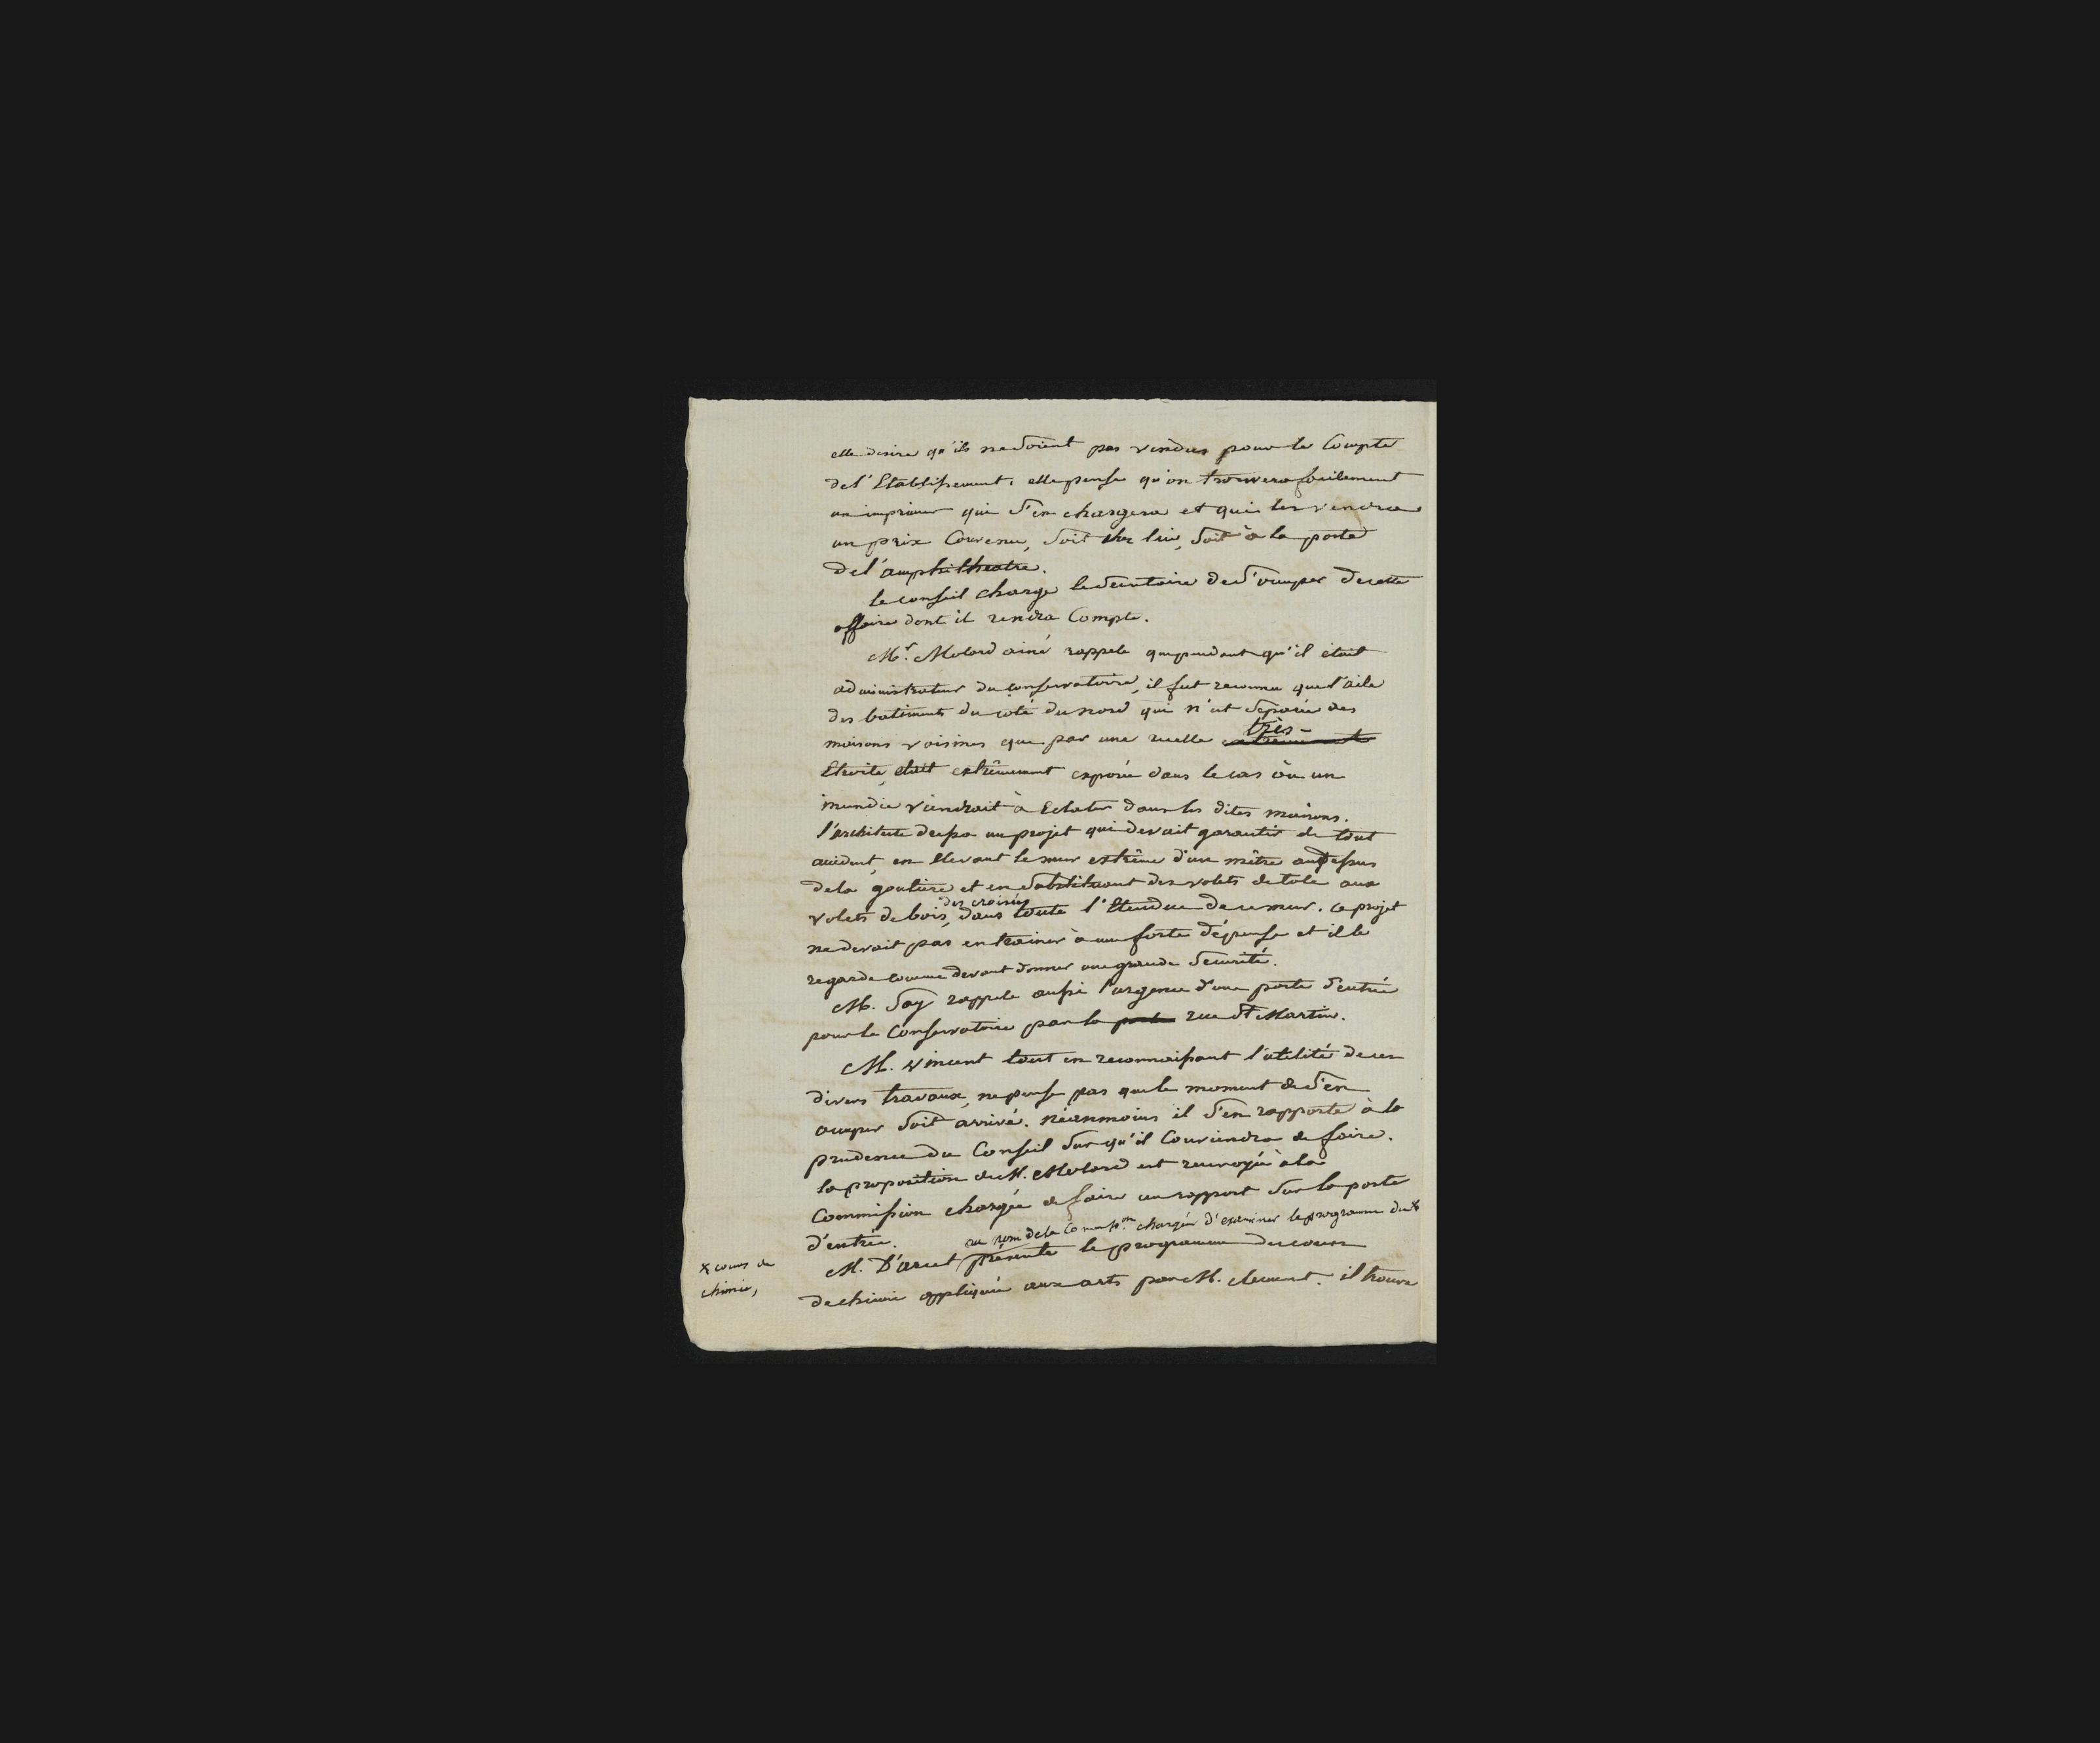 elle desire qu'ils ne soient pas vendus pour le Compte
de l'Etablissement. elle pense qu'on trouvera facilement
un imprimeur qui s'en chargera et qui les vendra
un prix Convenu, soit chez lui, soit à la porte
de l'amphithéatre.
le conseil charge le Secretaire de s'occuper de cette
affaire dont il rendra Compte.
Mr. Molard ainé rappele que pendant qu'il était
administrateur du Conservatoire, il fut reconnu que l'aile
des batiments du coté du nord qui n'est séparée des
très-
maisons voisines que par une ruelle extrêmement
Etroite, était extrêmement exposée dans le cas où un
incendie viendrait à Eclater dans les dites maisons.
l'architecte dressa un projet qui devait garantir de tout
accident, en Elevant le mur extrême d'un mêtre au dessus
de la goutiere et en substituant des volets de tole aux
des croisées
volets de bois, dans toute l'Etendue de ce mur. ce projet
ne devait pas entrainer à une forte dépense et il le
regarde comme devant donner une grande Securité.
M. Say rappele aussi l'urgence d'une porte d'entrée
pour le Conservatoire par la porte rue St Martin.
M. Vincent tout en reconnaissant l'utilité de ces
divers travaux, ne pense pas que le moment de s'en
occuper soit arrivé. Néanmoins il s'en rapporte à la
prudence du Conseil sur qu'il Conviendra de faire.
la proposition de M. Molard est renvoyée à la
Commission chargée de faire un rapport sur la porte
d'entrée.
au nom de la Commission chargée d'examiner le programme du x
M. D'arcet présente le programme du cours
x cours de
chimie,
de chimie appliquée aux arts par M. Clement. il trouve